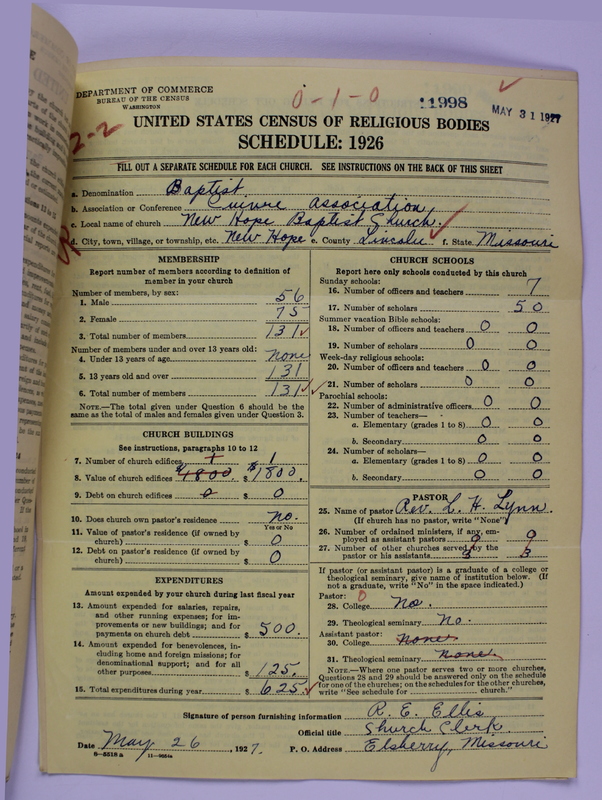 DEPARTMENT OF COMMERCE
BUREAU OF THE CENSUS
WASHINGTON
0-1-0
11998
MAY 31 1927
2-2
UNITED STATES CENSUS OF RELIGIOUS BODIES
SCHEDULE: 1926
FILL OUT A SEPARATE SCHEDULE FOR EACH CHURCH. SEE INSTRUCTIONS ON THE BACK OF THIS SHEET
a. Denomination Baptist
b. Association or Conference Cuivre Association
c. Local name of church New Hope Baptist Church.
d. City, town, village, or township, etc. New Hope e. County Lincoln f. State Missouri
MEMBERSHIP
Report number of members according to definition of
member in your church
Number of members, by sex:
1. Male 56
2. Female 75
3. Total number of members 131
Number of members under and over 13 years old:
4. Under 13 years of age None
5. 13 years old and over 131
6. Total number of members 131
NOTE.—The total given under Question 6 should be the
same as the total of males and females given under Question 3.
CHURCH BUILDINGS
See instructions, paragraphs 10 to 12
7. Number of church edifices 1 1
8. Value of church edifices $1800. $1800.
9. Debt on church edifices 0 $ 0
10. Does church own pastor's residence no.
Yes or No
11. Value of pastor's residence (if owned by
church) $ 0
12. Debt on pastor's residence (if owned by
church) $ 0
EXPENDITURES
Amount expended by your church during last fiscal year
13. Amount expended for salaries, repairs,
and other running expenses; for im-
provements or new buildings; and for
payments on church debt $ 500.
14. Amount expended for benevolences, in-
cluding home and foreign missions; for
denominational support; and for all
other purposes $ 125.
15. Total expenditures during year $ 625.
CHURCH SCHOOLS
Report here only schools conducted by this church
Sunday schools:
16. Number of officers and teachers 7
17. Number of scholars 50
Summer vacation Bible schools:
18. Number of officers and teachers 0 0
19. Number of scholars 0 0
Week-day religious schools:
20. Number of officers and teachers 0 0
21. Number of scholars 0 0
Parochial schools:
22. Number of administrative officers 0 0
23. Number of teachers—
a. Elementary (grades 1 to 8) 0 0
b. Secondary 0 0
24. Number of scholars—
a. Elementary (grades 1 to 8) 0 0
b. Secondary 0 0
PASTOR
25. Name of pastor Rev. L. H. Lynn.
(If church has no pastor, write "None")
26. Number of ordained ministers, if any, em-
ployed as assistant pastors 0 0
27. Number of other churches served by the
pastor or his assistants 3 3
If pastor (or assistant pastor) is a graduate of a college or
theological seminary, give name of institution below. (If
not a graduate, write "No" in the space indicated.)
Pastor: 0
28. College No.
29. Theological seminary No.
Assistant pastor:
30. College None
31. Theological seminary None.
NOTE.—Where one pastor serves two or more churches,
Questions 28 and 29 should be answered only on the schedule
for one of the churches; on the schedules for the other churches,
write "See schedule for church."
Signature of person furnishing information R. E. Ellis
Official title Church Clerk.
Date May 26, 1927. P. O. Address Elsberry, Missouri
8—5518 a 11—9051a